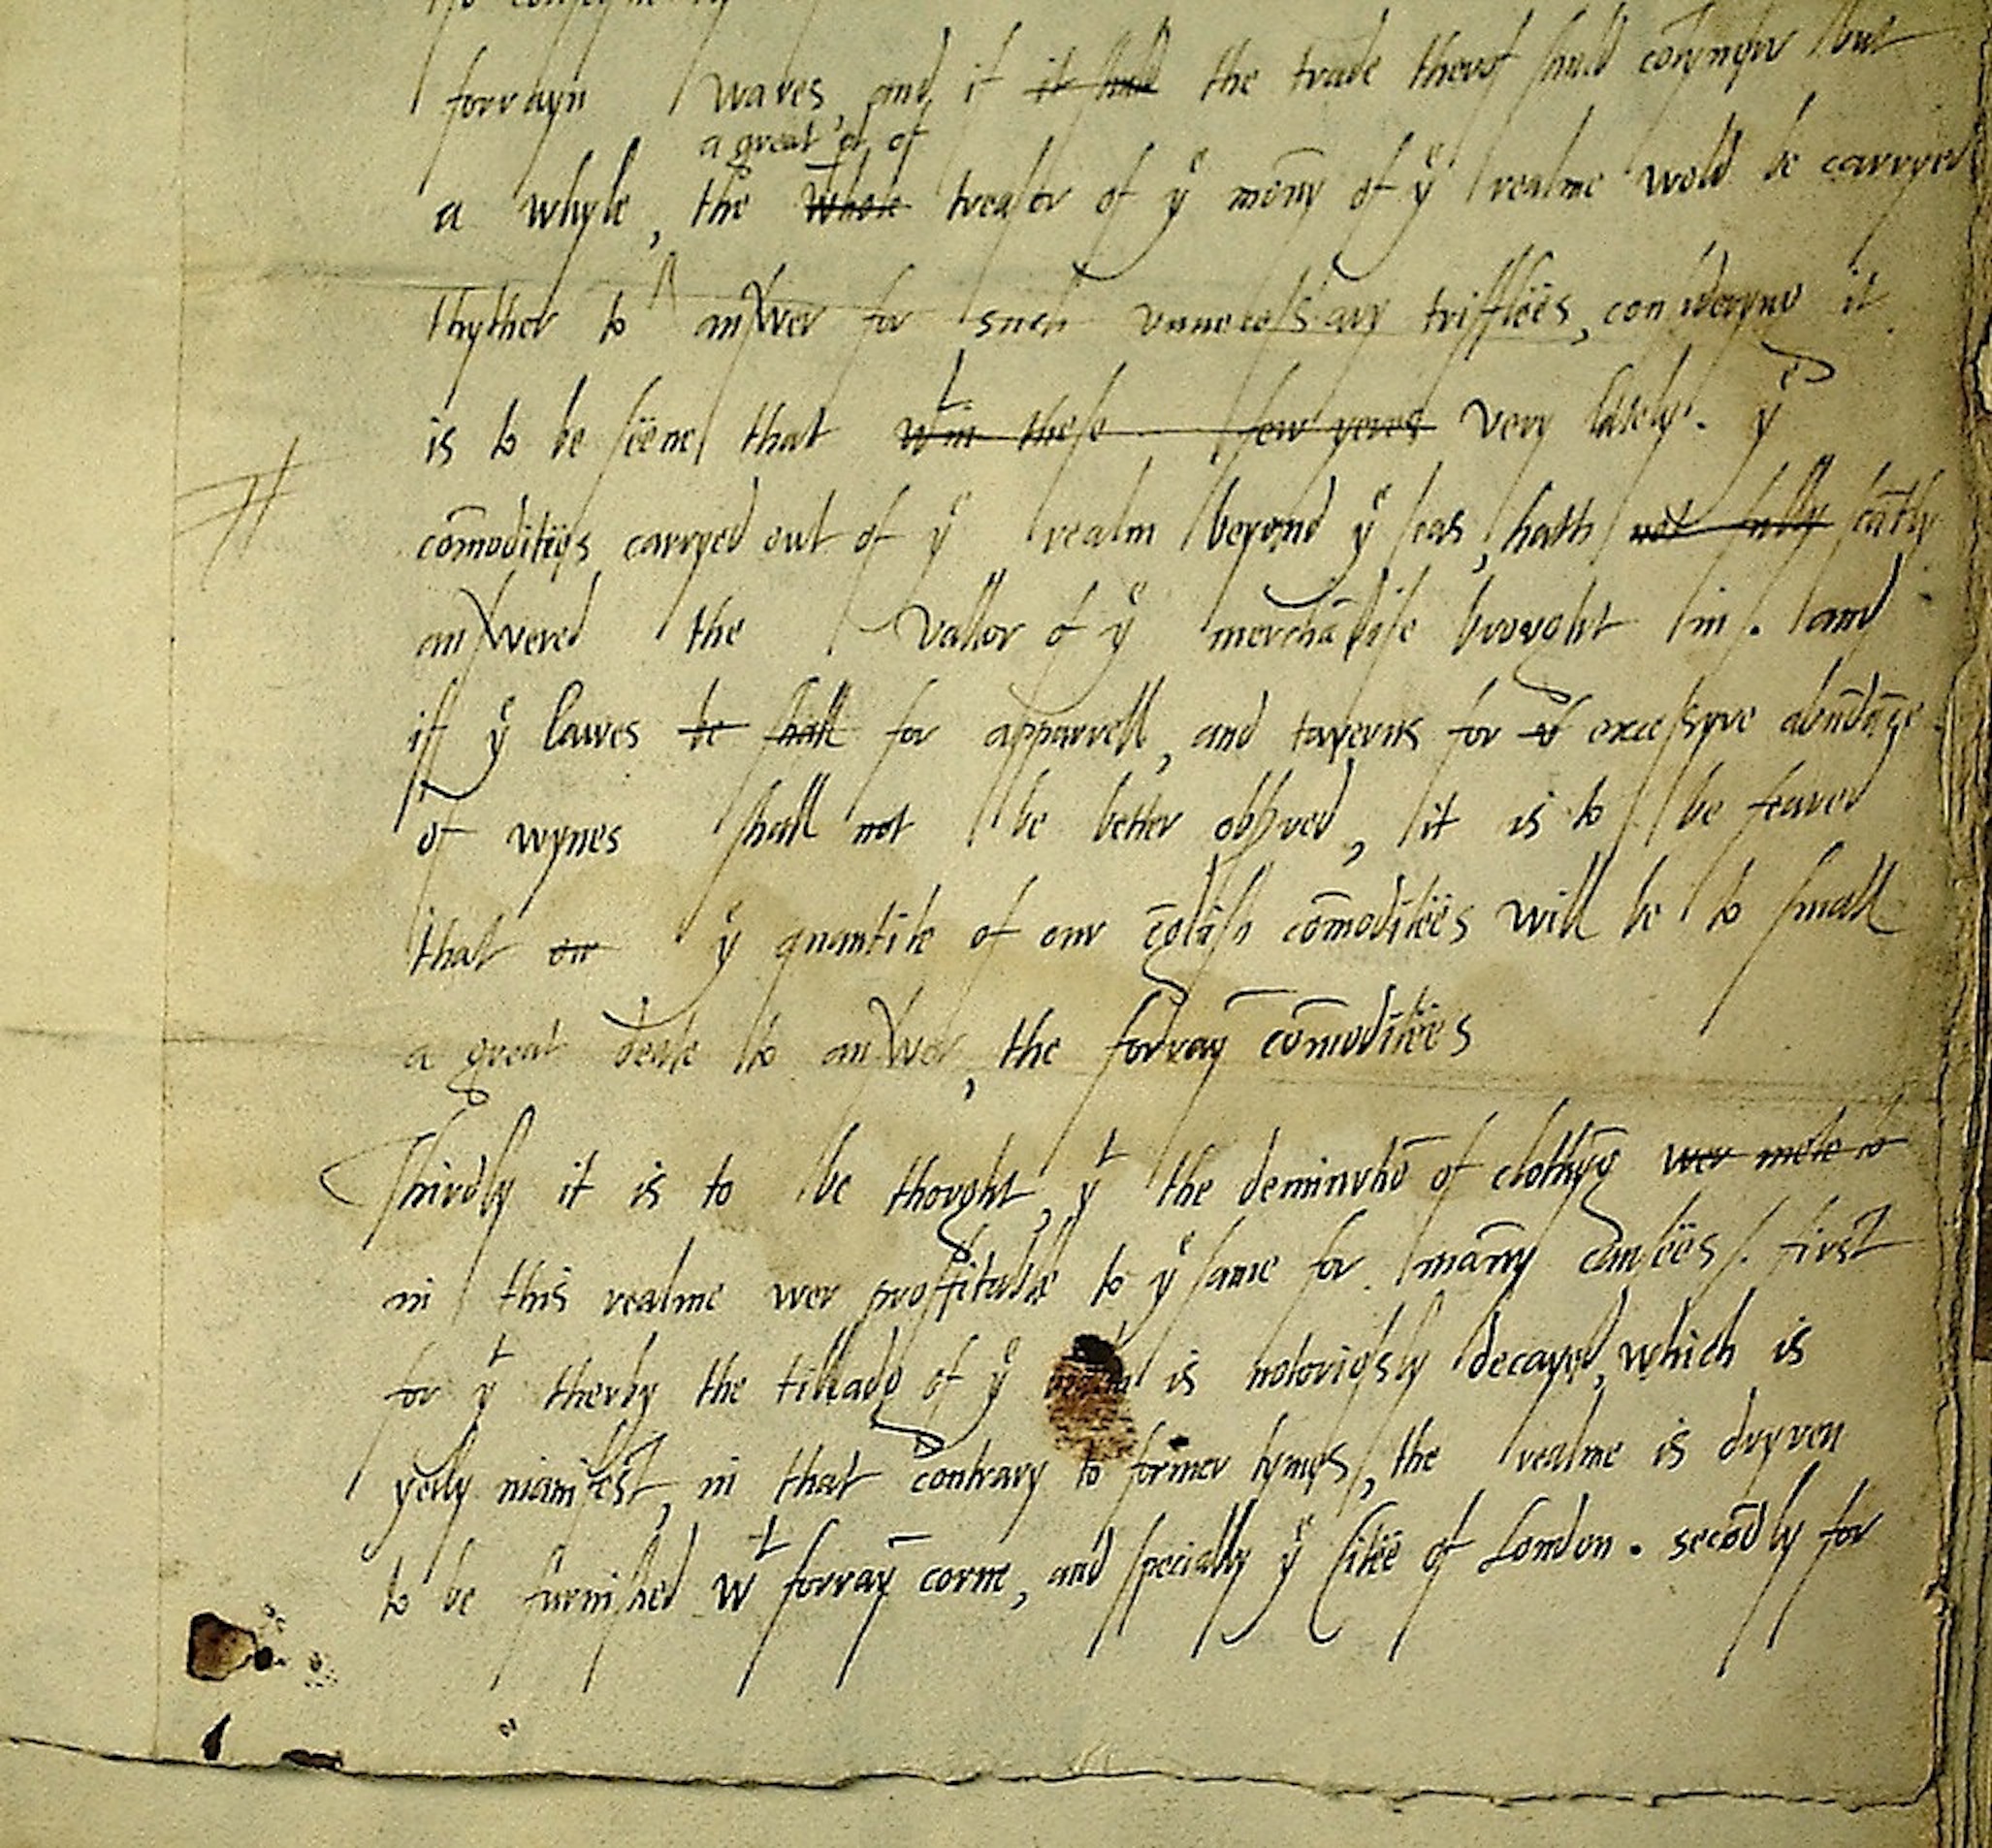 forrayn wares, and if it shuld the trade therof shuld contynew but
a great pt of
a whyle, the whole treasor of yͤ mony of yͤ realme wold be carryed
thyther to answer for such unnecessary triffleës, consideryng it
is to be seëne that wᵗin these few yeres very lately. yͤ
cōmoditiës carryed out of yͤ realm beyond yͤ seas, hath not fully scātly
answered the vallor of yͤ merchādise brought in. and
iff yͤ lawes be shall for apparrell, and taverns for excessyve abūdāce
of wynes shall not be better observed, it is to be feared
that our yͤ quantite of our ēglish cōmoditeës will be to small
a great deale to answer, the forray̅ cōmoditeës
Thirdly it is to be thought, yᵗ the deminutiō of clothyg̅ wer mete to
in this realme wer proffitable to yͤ same for many causeës. first
for yᵗ therby the tilladg of yͤ realm is notoriosly decayed, which is
yerly manifest, in that contrary to former tymes, the realme is dryven
to be furnished wᵗ forray̅ corne, and specially yͤ Citeë of London. secōdly for